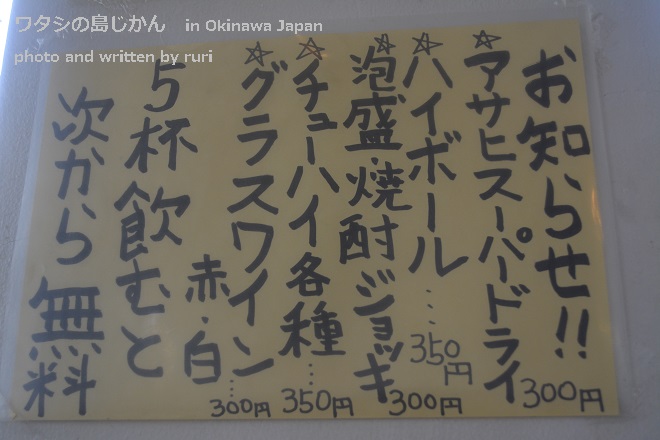 ワタシの島じかん in Okinawa Japan
photo and written by ruri
お知らせ!!
☆アサヒスーパードライ 300円
☆ハイボール…350円
☆泡盛・焼酎ジョッキ 300円
☆チューハイ各種…350円
☆グラスワイン…300円
赤・白
5杯飲むと
次から無料